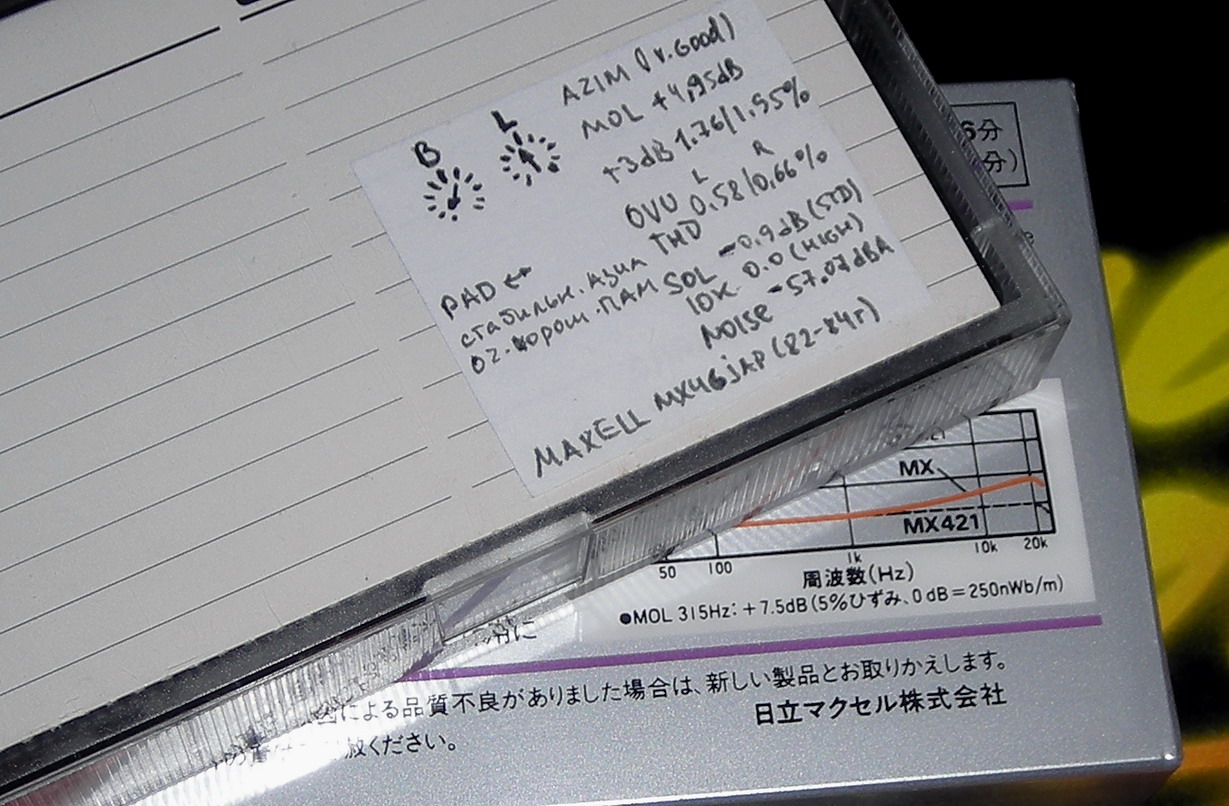 B L AZIM (V.GOOD)
MOL +4,95dB
+3dB 1.76/1.95%
L R
OVU 0.58/0,66%
THD
PAD ↔
стабильн. Азим
SOL -0.9dB (STD)
10K 0.0 (HIGH)
NOISE -57.07dBA
MAXELL MX46 JAP (82-84г)
6分
分)
MX
MX421
50 100 1k 10k 20k
周波数(Hz)
●MOL 315Hz:+7.5dB(5%ひずみ、0dB=250nWb/m)
による品質不良がありました場合は、新しい製品とお取りかえします。
ください。
日立マクセル株式会社